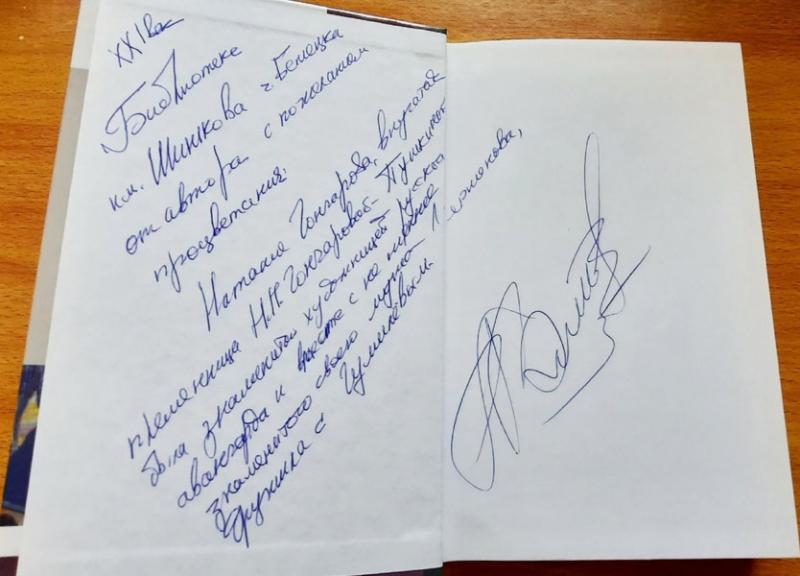 XXI век
Библиотеке
им. Шишкова г. Бежецка
от автора с пожеланием
процветания.
Наталия Гончарова, внучатая
племянница Н.Н. Гончаровой-Пушкиной
была знаменитой художницей русского
авангарда и вместе с не менее
знаменитого своего мужа Ларионова,
дружила с Гумилёвым